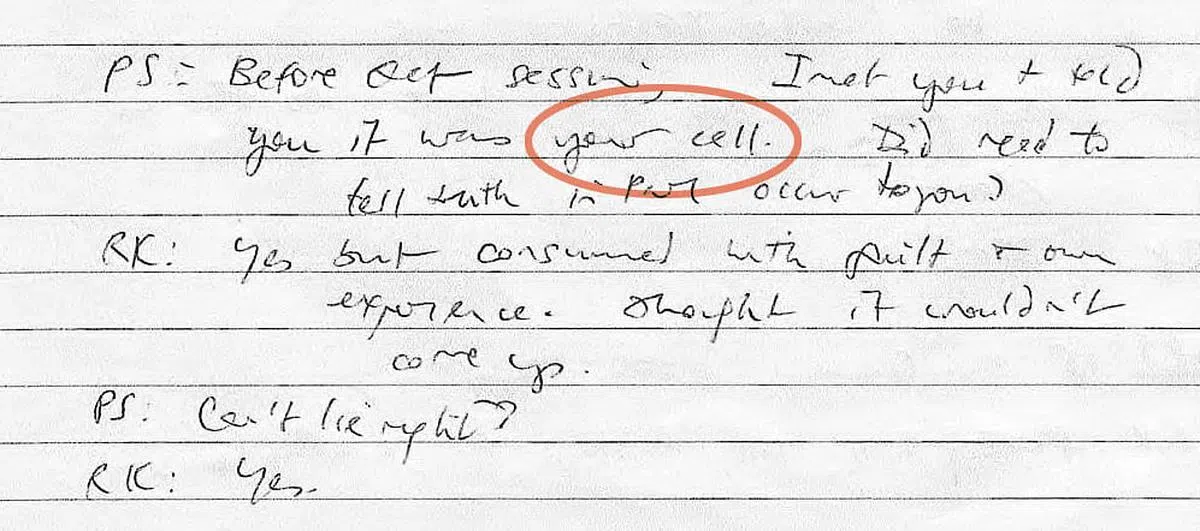 PS: Before Oct session, I met you + told
you it was your cell. Did need to
tell truth in Part occur to you?
RK: Yes but consumed with guilt + own
experience. thought it wouldn't
come up.
PS: Can't lie right?
RK: Yes.